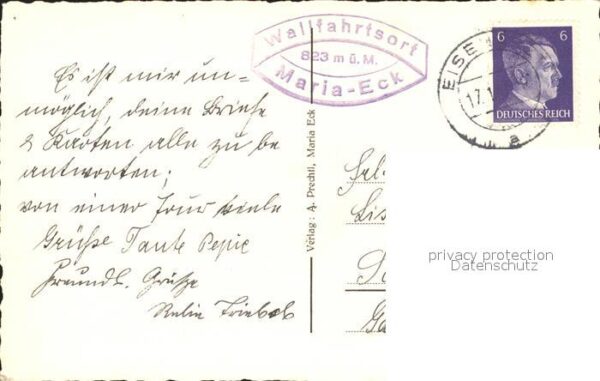 Wallfahrtsort
823 m ü. M.
Maria-Eck
6 6
DEUTSCHES REICH
EISE
17.1
a
Es ist mir un-
möglich, deine Briefe
& Karten alle zu be
antworten;
von einer Tour viele
Grüße Tante Pepie
Freundl. Grüße
Verlag: A. Prechtl, Maria Eck
Frl.
Lis
privacy protection
Datenschutz